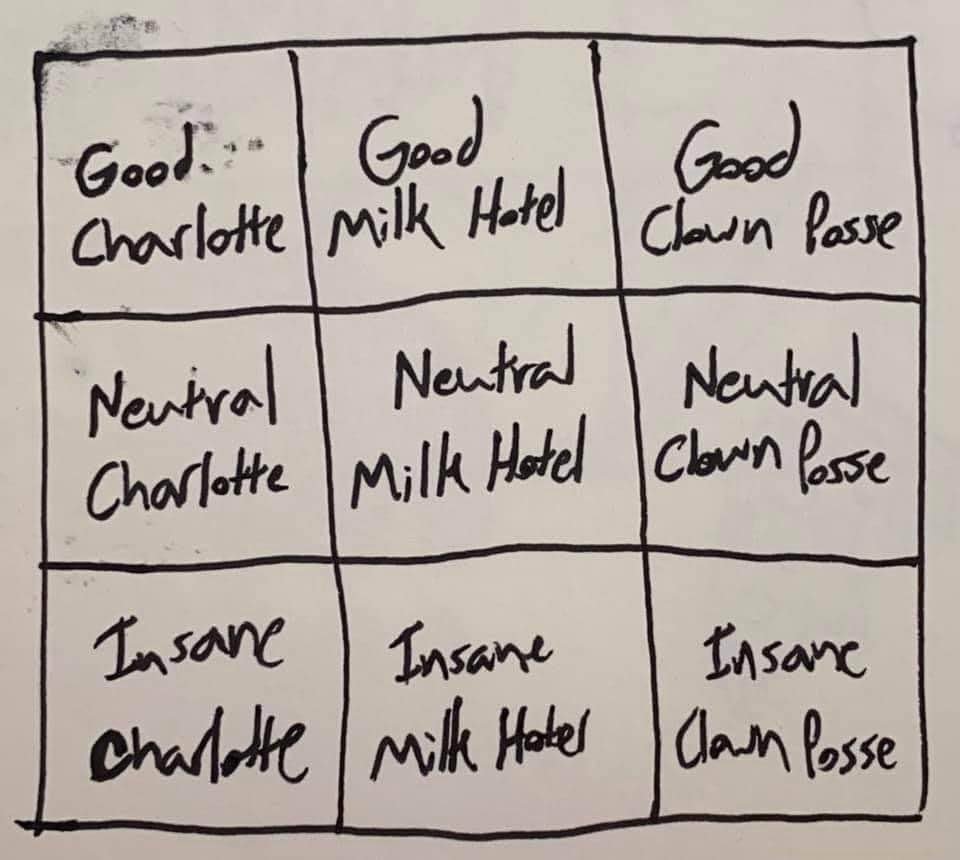 Good
Charlotte
Good
Milk Hotel
Good
Clown Posse
Neutral
Charlotte
Neutral
Milk Hotel
Neutral
Clown Posse
Insane
Charlotte
Insane
Milk Hotel
Insane
Clown Posse